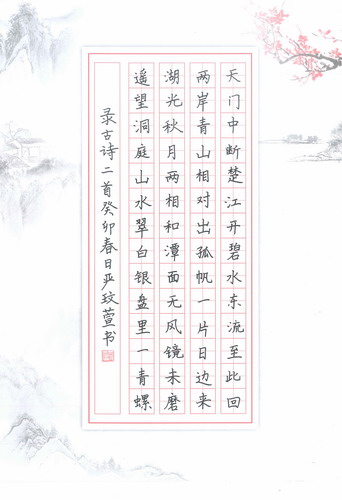 天门中断楚江开碧水东流至此回
两岸青山相对出孤帆一片日边来
湖光秋月两相和潭面无风镜未磨
遥望洞庭山水翠白银盘里一青螺
录古诗二首癸卯春日严玟萱书